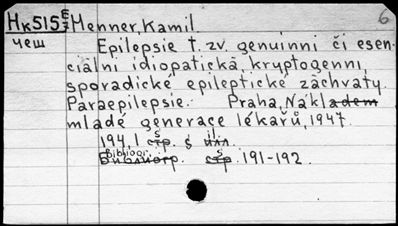 Нк515 Е/7 Henner, Kamil. 6
чеш
Epilepsie t. zv. genuinní či esen-
ciální idiopatická, kryptogenní,
sporadické epileptické záchvaty.
Paraepilepsie. Praha, Nákladem
mladé generace lékařů, 1947.
194, 1 стр. s š илл. il.
Библиогр. Bibliogr. стр. s 191-192.